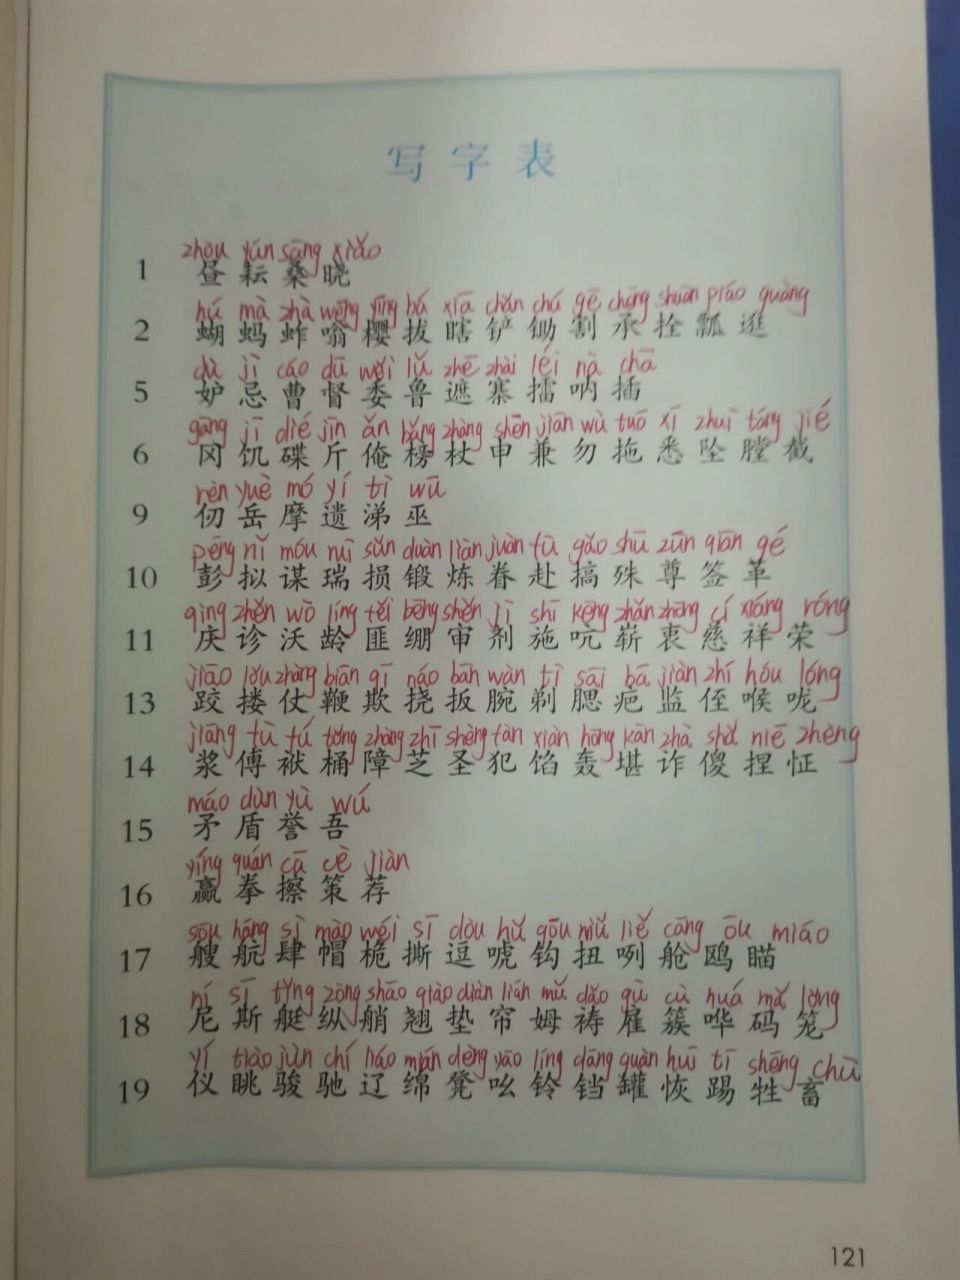 写字表
zhòu yún sāng xiǎo
1 昼 耘 桑 晓
hú mà zhà wēng yīng bá xiā chǎn chú gē chéng shuān piáo guàng
2 蝴 蚂 蚱 嗡 樱 拔 瞎 铲 锄 割 承 拴 瓢 逛
dù jì cáo dū wěi lǔ zhē zhài léi nà chā
5 妒 忌 曹 督 委 鲁 遮 寨 擂 呐 插
gāng jī dié jīn ǎn bǎng zhàng shēn jiān wù tuō xī zhuì táng jié
6 冈 饥 碟 斤 俺 榜 杖 申 兼 勿 拖 悉 坠 膛 截
rèn yuè mó yí tì wū
9 仞 岳 摩 遗 涕 巫
péng nǐ móu ruì sǔn duàn liàn juàn fù gǎo shū zūn qiān gé
10 彭 拟 谋 瑞 损 锻 炼 眷 赴 搞 殊 尊 签 革
qìng zhěn wò líng fěi bēng shěn jì shī kēng zhǎn zhōng cí xiáng róng
11 庆 诊 沃 龄 匪 绷 审 剂 施 吭 崭 衷 慈 祥 荣
jiāo lǒu zhàng biān qī náo bān wàn tì sāi bā jiàn zhí hóu lóng
13 跤 搂 仗 鞭 欺 挠 扳 腕 剃 腮 疤 监 侄 喉 咙
jiāng fù fú tǒng zhàng zhī shèng fàn xiàn hōng kān zhà shǎ niē zhèng
14 浆 傅 袱 桶 障 芝 圣 犯 馅 轰 堪 诈 傻 捏 怔
máo dùn yù wú
15 矛 盾 誉 吾
yíng quán cā cè jiàn
16 赢 拳 擦 策 荐
sōu háng sì mào wéi sī dòu hǔ gōu niǔ liě cāng ōu miáo
17 艘 航 肆 帽 桅 撕 逗 唬 钩 扭 咧 舱 鸥 瞄
ní sī tǐng zòng shāo qiào diàn lián mǔ dǎo gù cù huá mǎ lóng
18 尼 斯 艇 纵 艄 翘 垫 帘 姆 祷 雇 簇 哗 码 笼
yí tiào jùn chí liáo mián dèng yāo líng dāng guàn huī tī shēng chù
19 仪 眺 骏 驰 辽 绵 凳 吆 铃 铛 罐 恢 踢 牲 畜
121